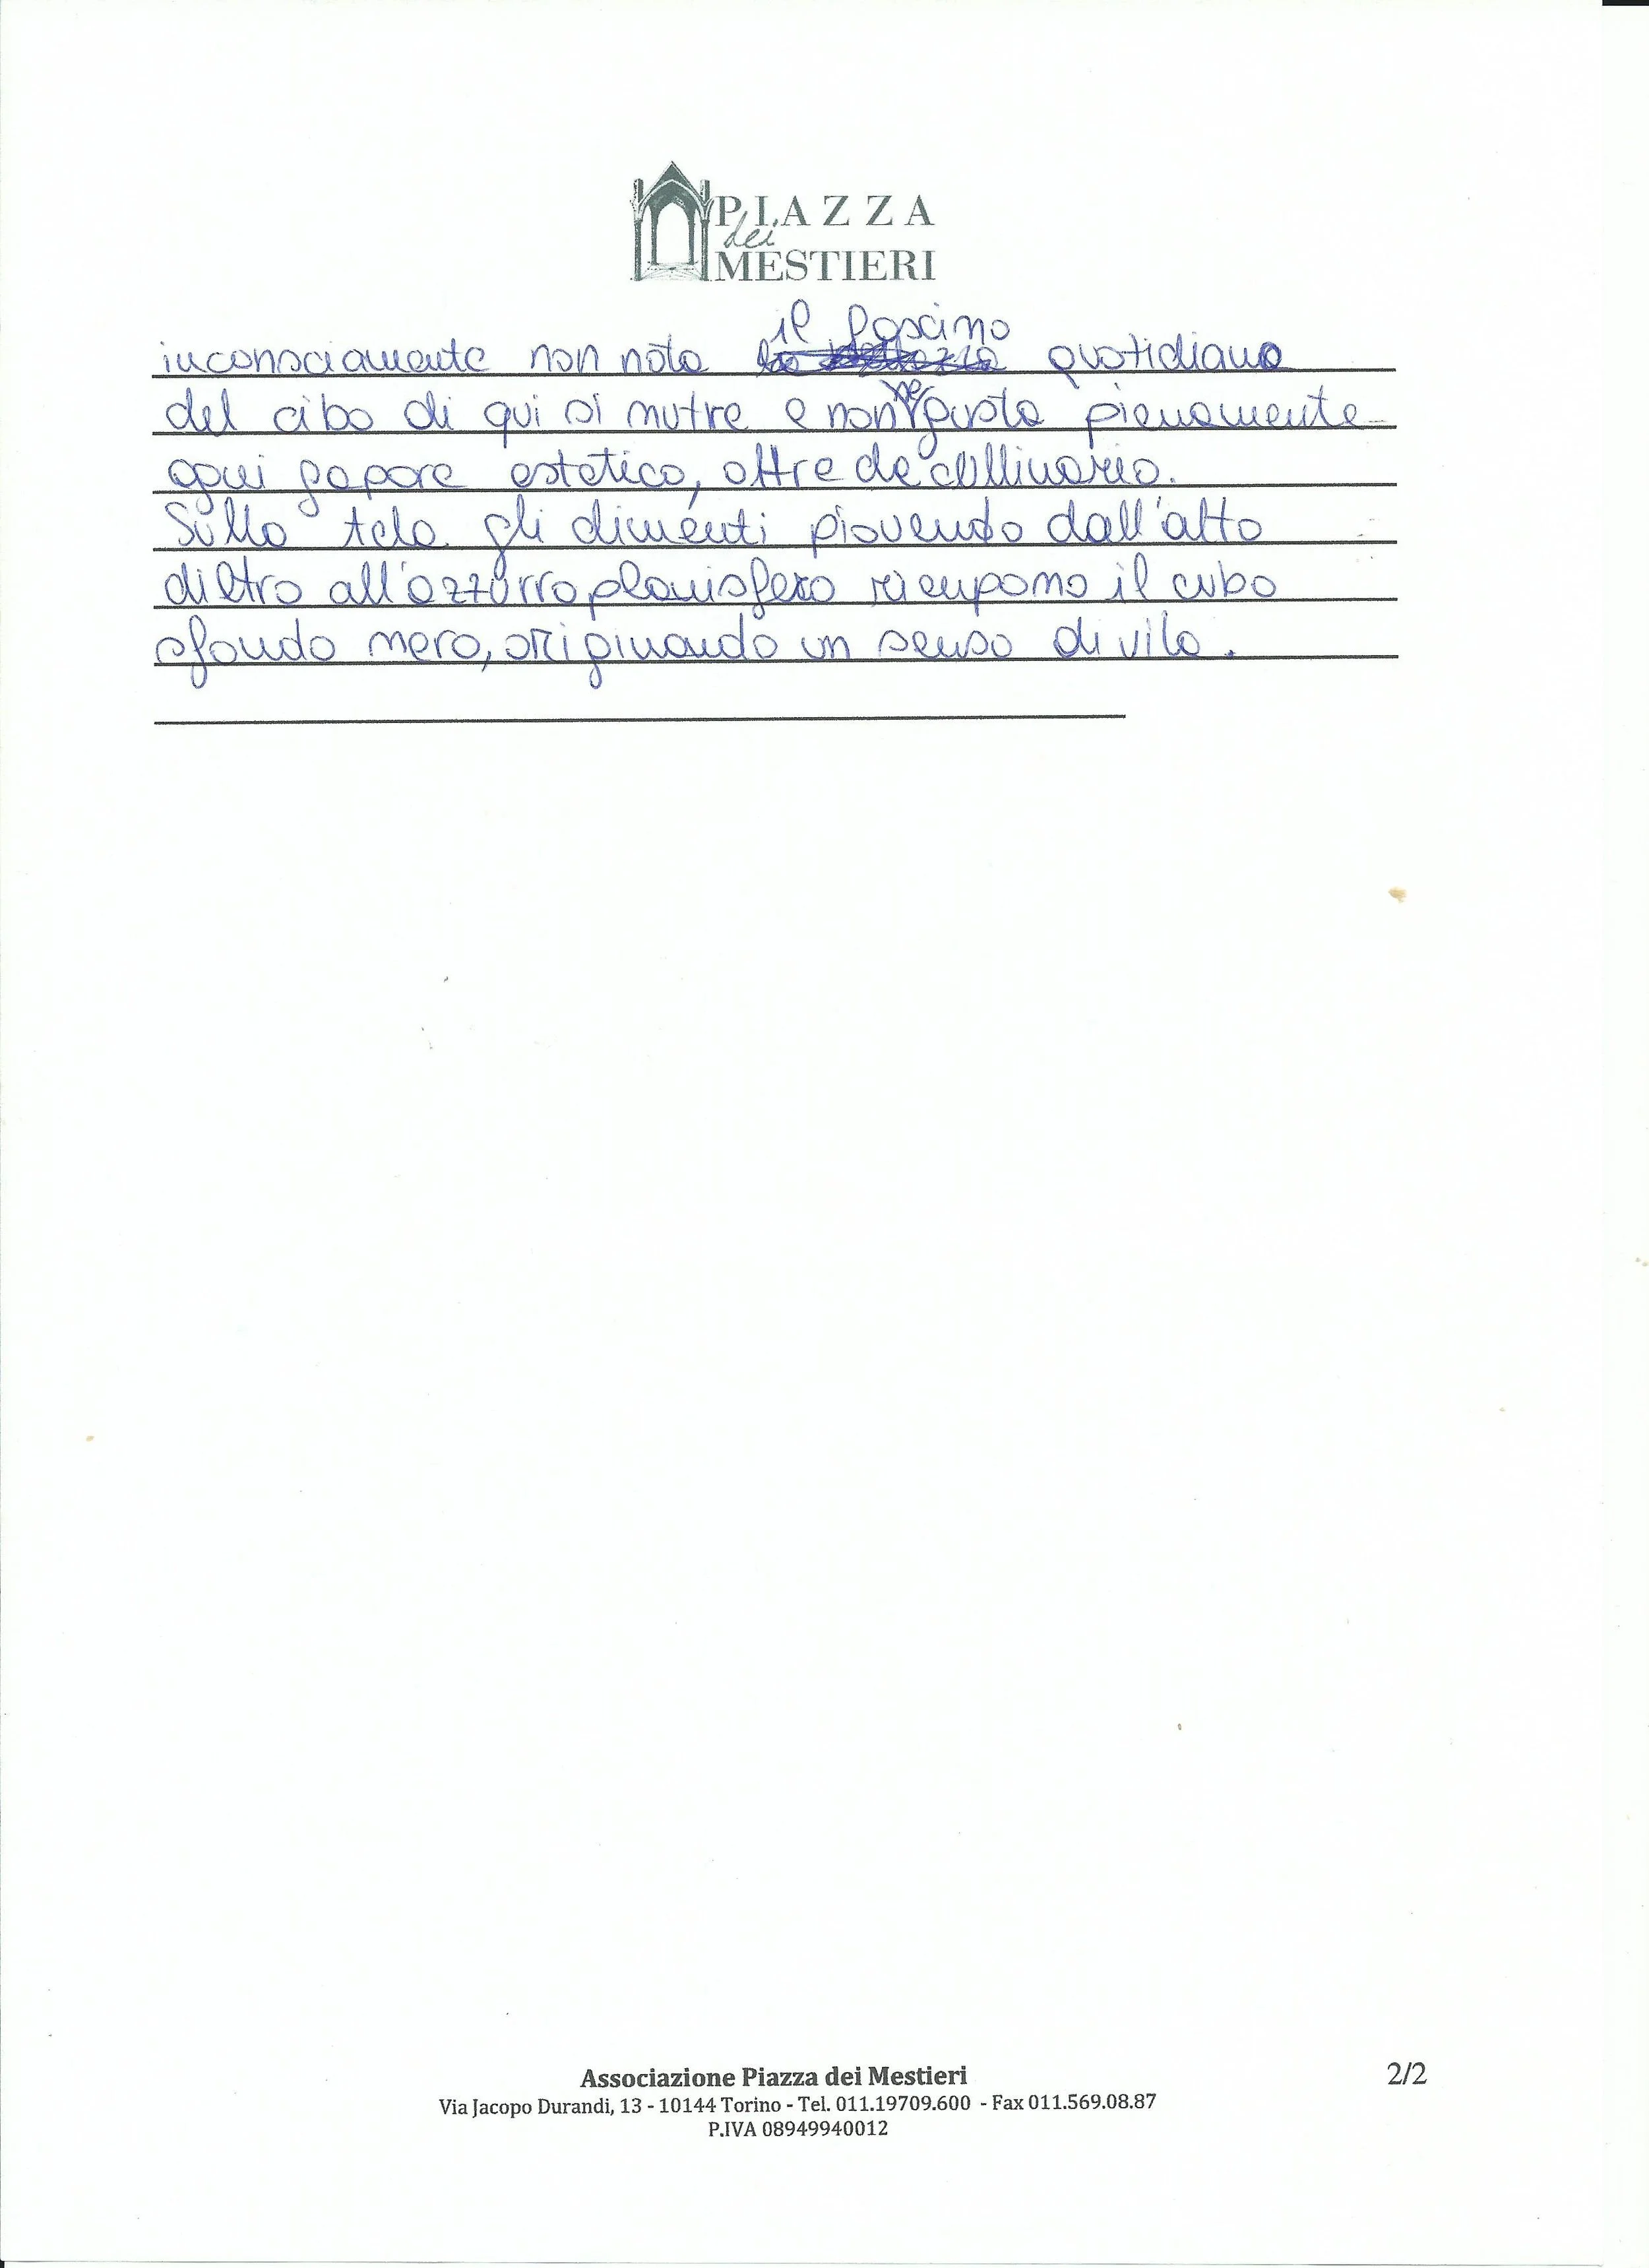 PIAZZA
dei
MESTIERI
il fascino
inconsciamente non nota la bellezza quotidiano
ne
del cibo di qui si nutre e non gusta pienamente
ogni sapore estetico, oltre che cullinario.
Sulla tela gli alimenti piovendo dall'alto
dietro all'azzurro planisfero riempono il cubo
sfondo nero, originando un senso di vita.
Associazione Piazza dei Mestieri
2/2
Via Jacopo Durandi, 13 - 10144 Torino - Tel. 011.19709.600 - Fax 011.569.08.87
P.IVA 08949940012